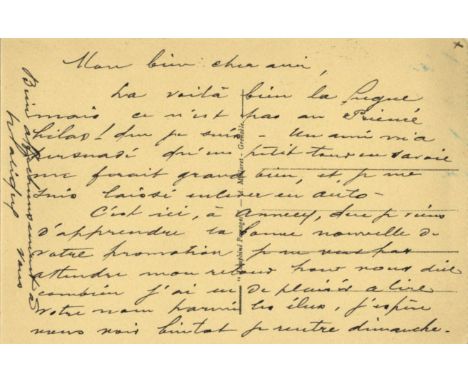 Mon bien cher ami,
La voilà bien la fugue
mais ce n'est pas au
hélas! que je suis - Un ami m'a
persuadé qu'un petit tour en Savoie
me ferait grand bien, et je me
suis laissé enlever en auto -
C'est ici, à Annecy, que je viens
d'apprendre la bonne nouvelle de
votre promotion je ne veux pas
attendre mon retour pour vous dire
combien j'ai eu de plaisir à lire
votre nom parmi les élus, j'espère
vous voir bientôt je rentre dimanche -
Bien affectueusement à
vous